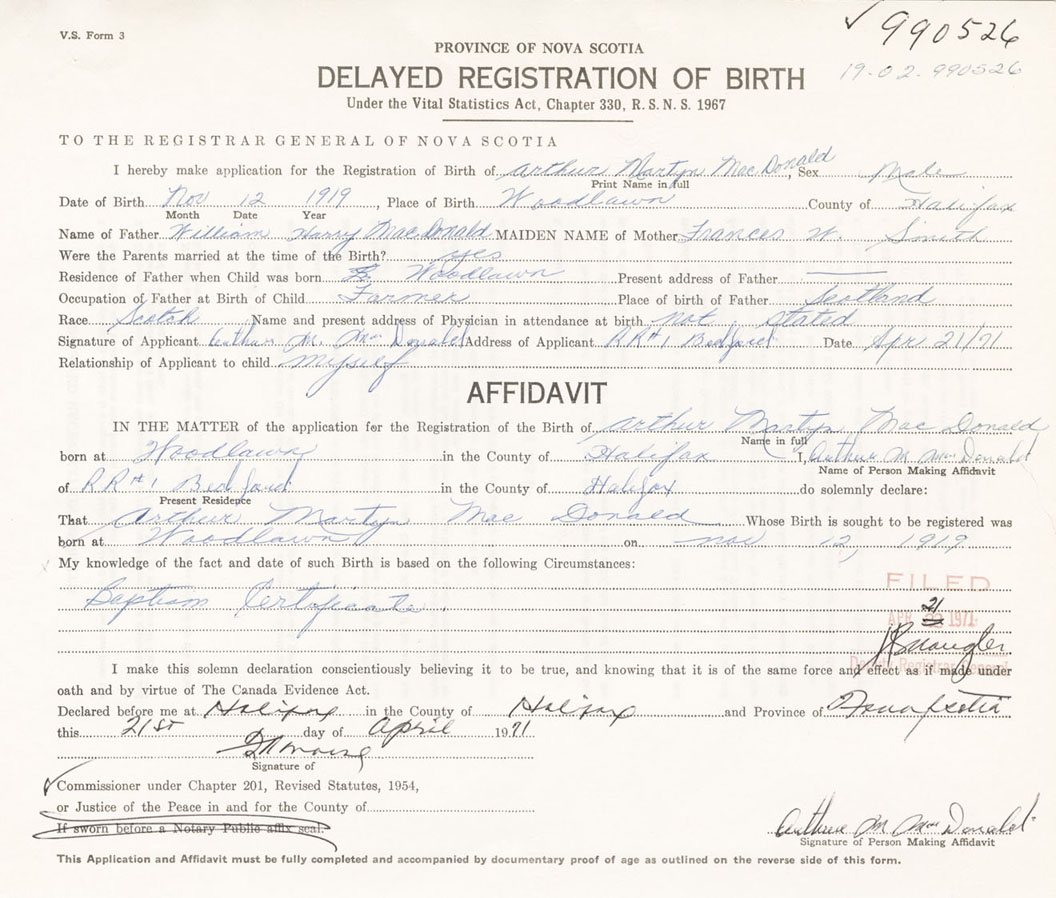 V.S. Form 3
990526
19-02-990526
PROVINCE OF NOVA SCOTIA
DELAYED REGISTRATION OF BIRTH
Under the Vital Statistics Act, Chapter 330, R. S. N. S. 1967
TO THE REGISTRAR GENERAL OF NOVA SCOTIA
I hereby make application for the Registration of Birth of Arthur Martyn MacDonald, Sex Male
Print Name in full
Date of Birth Nov 12 1919, Place of Birth Woodlawn County of Halifax
Month Date Year
Name of Father William Harry MacDonald MAIDEN NAME of Mother Frances W. Smith
Were the Parents married at the time of the Birth? yes
Residence of Father when Child was born Woodlawn Present address of Father
Occupation of Father at Birth of Child Farmer Place of birth of Father Scotland
Race Scotch Name and present address of Physician in attendance at birth not stated
Signature of Applicant Arthur M. MacDonald Address of Applicant RR#1 Bedford Date Apr 21/71
Relationship of Applicant to child myself
AFFIDAVIT
IN THE MATTER of the application for the Registration of the Birth of Arthur Martyn MacDonald
Name in full
born at Woodlawn in the County of Halifax I, Arthur M MacDonald
Name of Person Making Affidavit
of RR#1 Bedford in the County of Halifax do solemnly declare:
Present Residence
That Arthur Martyn MacDonald Whose Birth is sought to be registered was
born at Woodlawn on nov 12, 1919
My knowledge of the fact and date of such Birth is based on the following Circumstances:
Baptism Certificate.
FILED
APR 21 1971
Deputy Registrar General
I make this solemn declaration conscientiously believing it to be true, and knowing that it is of the same force and effect as if made under
oath and by virtue of The Canada Evidence Act.
Declared before me at Halifax in the County of Halifax and Province of Nova Scotia
this 21st day of April 1971
Signature of
Commissioner under Chapter 201, Revised Statutes, 1954,
or Justice of the Peace in and for the County of
If sworn before a Notary Public affix seal.
Arthur M MacDonald
Signature of Person Making Affidavit
This Application and Affidavit must be fully completed and accompanied by documentary proof of age as outlined on the reverse side of this form.